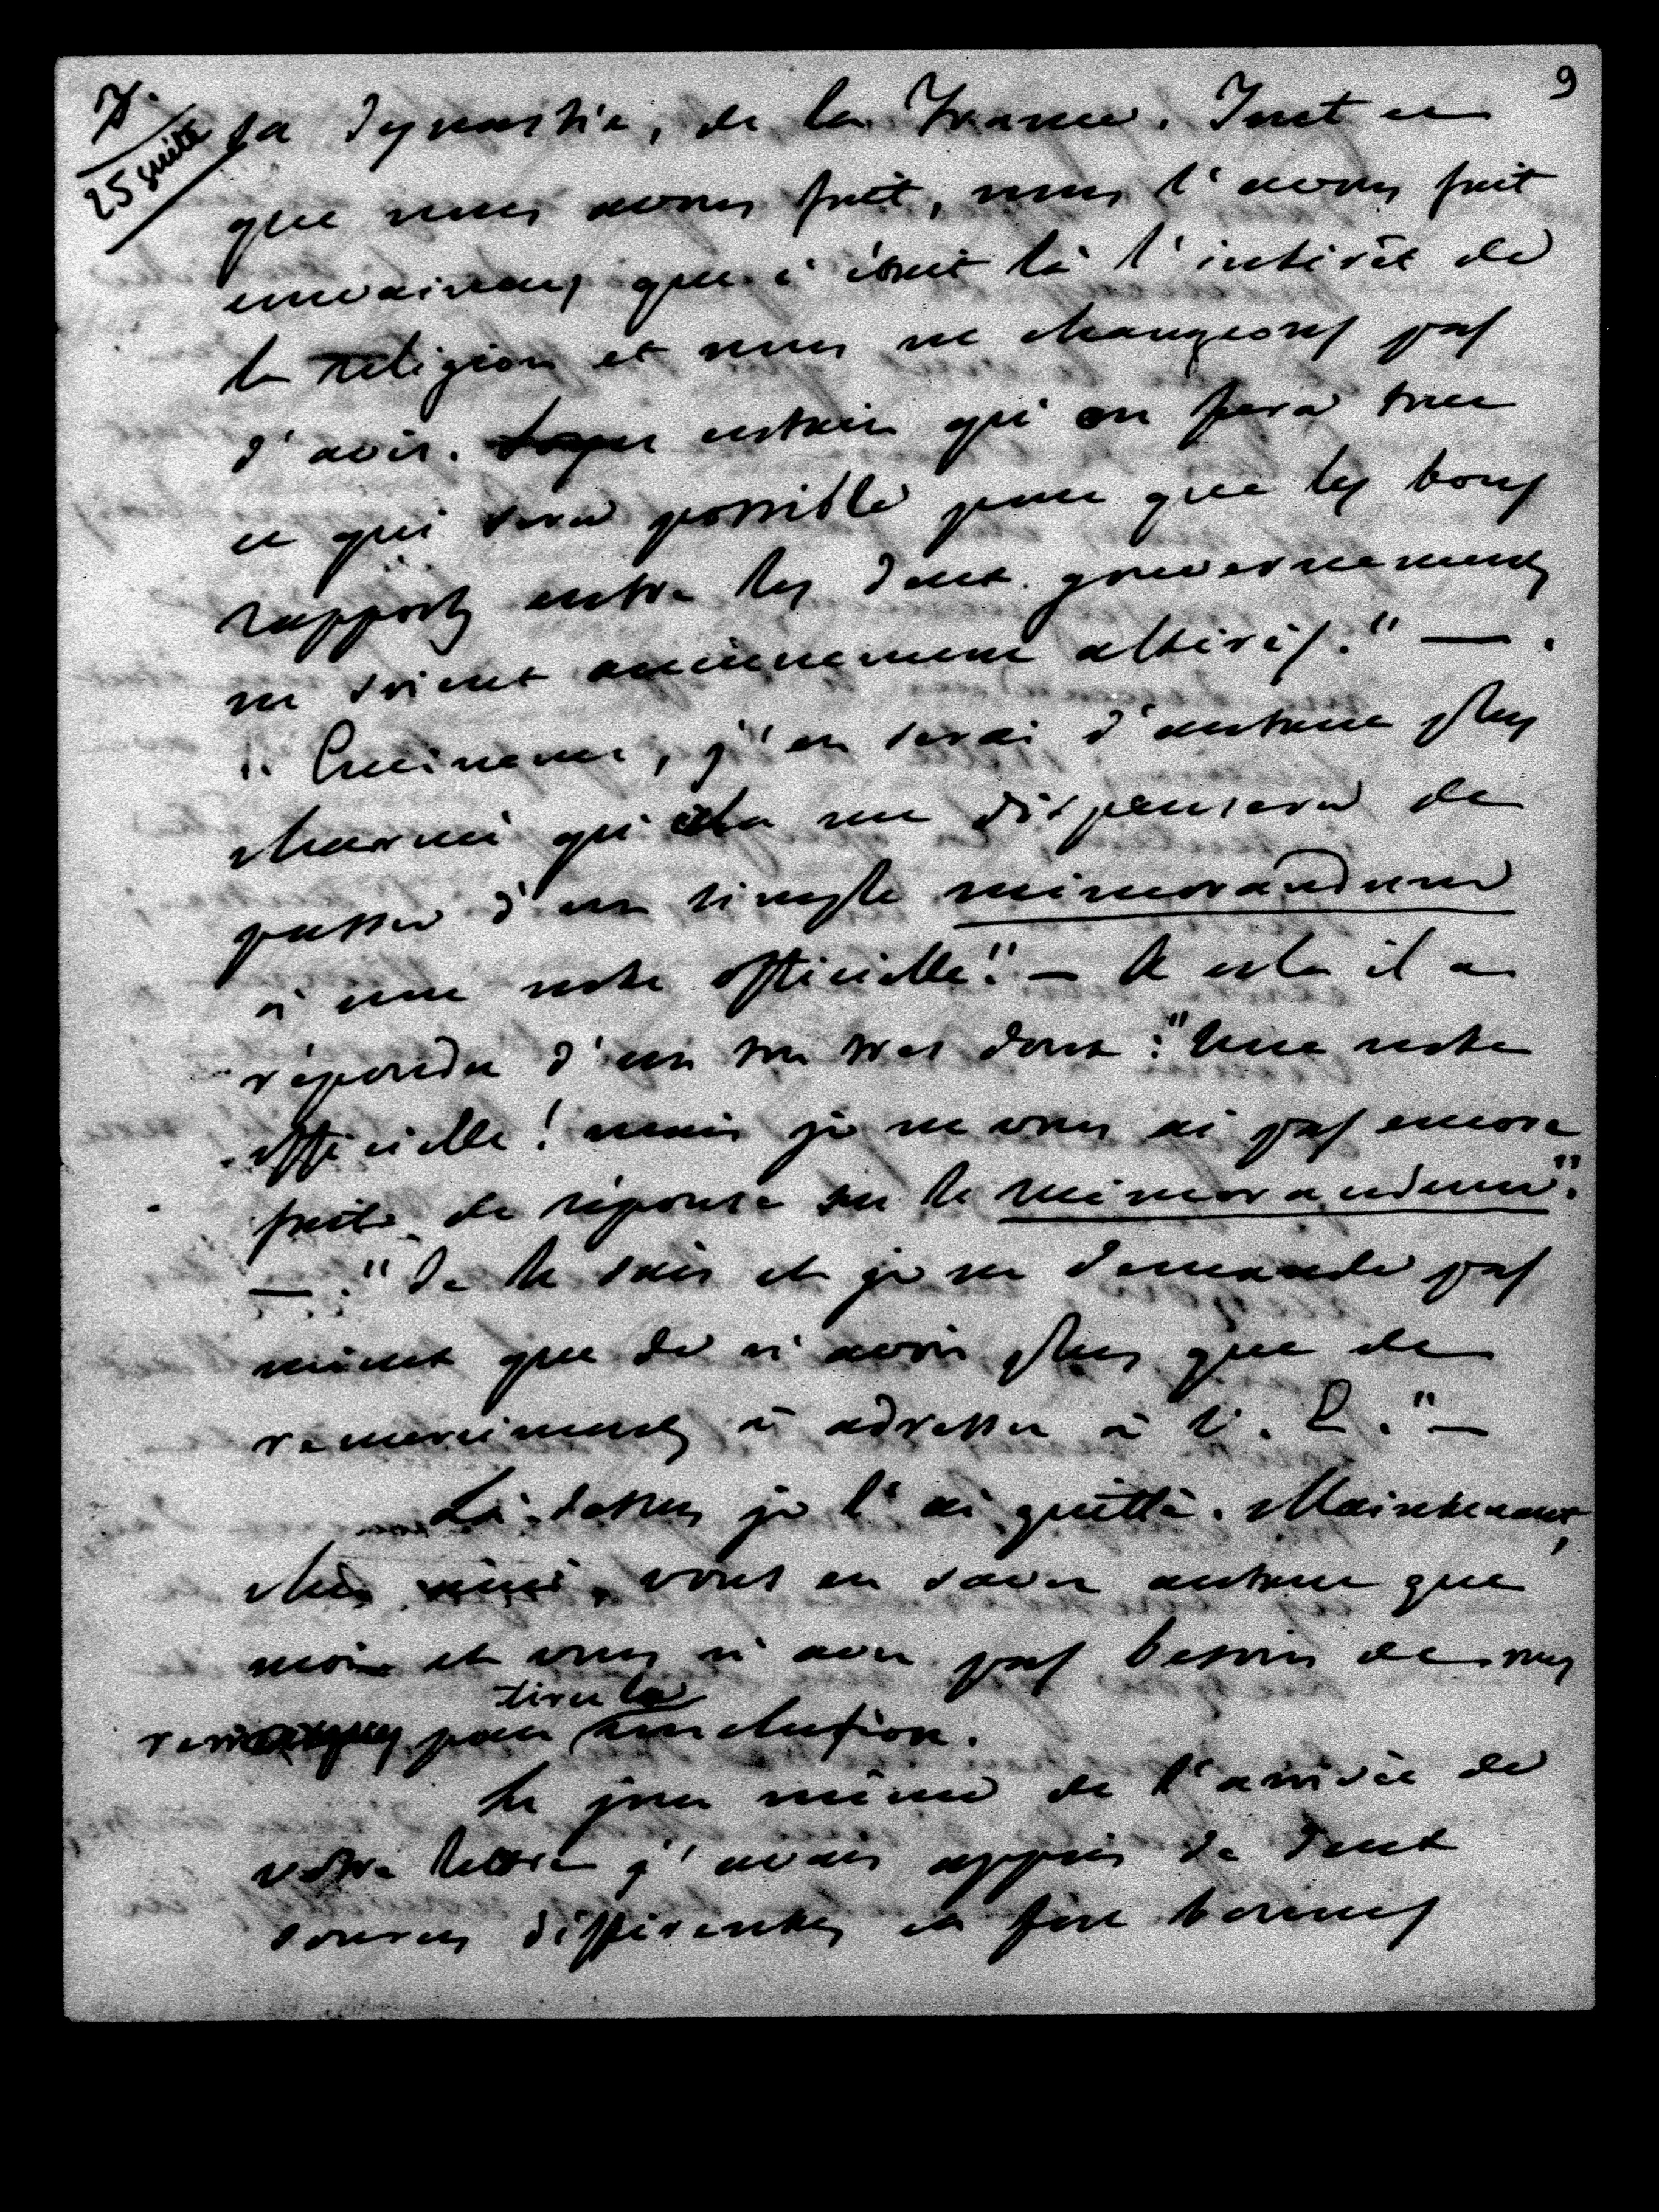 9
25 suite
sa dynastie, de la France. Tout ce
que nous avons fait, nous l'avons fait
convaincus que c'était là l'intérêt de
la religion et nous ne changeons pas
d'avis. certain qu'on fera tout
ce qui sera possible pour que les bons
rapports entre les deux gouvernements
ne soient aucunement altérés." — .
"Eminence, j'en serai d'autant plus
charmé que cela me dispensera de
passer d'un simple mémorandum
à une note officielle." — A cela il a
répondu d'un ton très doux : "Une note
officielle ! mais je ne vous ai pas encore
fait de réponse sur le mémorandum".
— . "Je le sais et je ne demande pas
mieux que de n'avoir plus que de
remerciements à adresser à V. E." —
Là-dessus je l'ai quitté. Maintenant,
cher ami, vous en savez autant que
moi et vous n'avez pas besoin de mes
remarques pour tirer la conclusion.
Le jour même de l'arrivée de
votre lettre j'avais appris de deux
sources différentes et fort bonnes